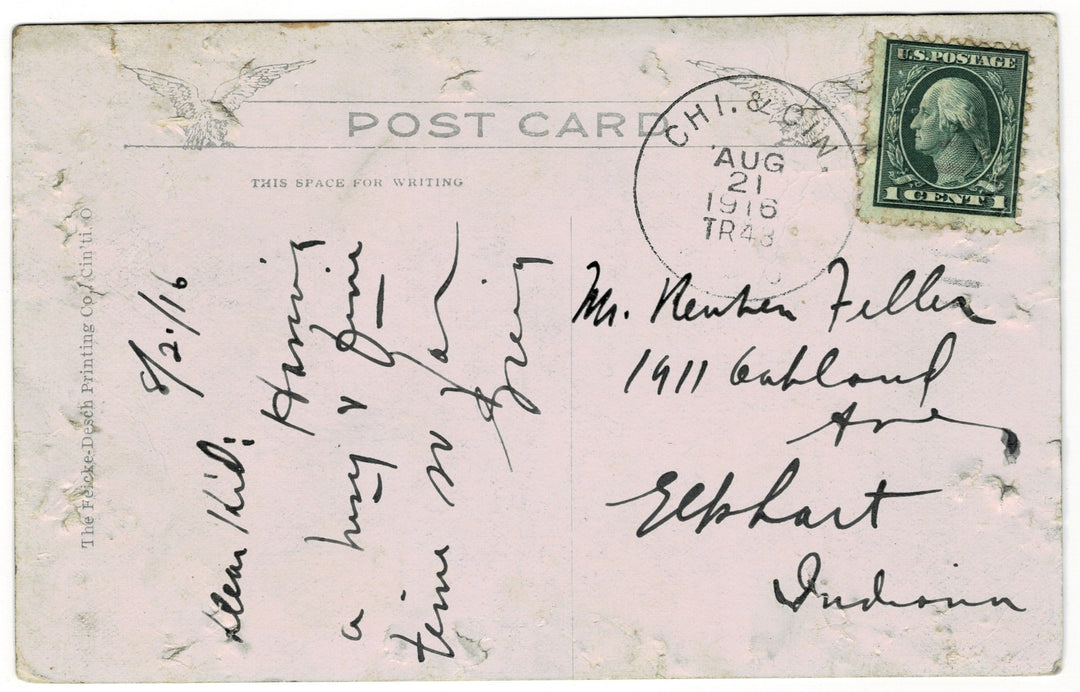 POST CARD
THIS SPACE FOR WRITING
CHI. & CIN.
AUG
21
1916
TR43
U.S. POSTAGE
1 CENT 1
The Feicke-Desch Printing Co., Cin'ti. O
8/21/16
Dear Kid:
Having
a busy & fine
time so far
Mr. Reuben Feller
1911 Oakland
Ave
Elkhart
Indiana